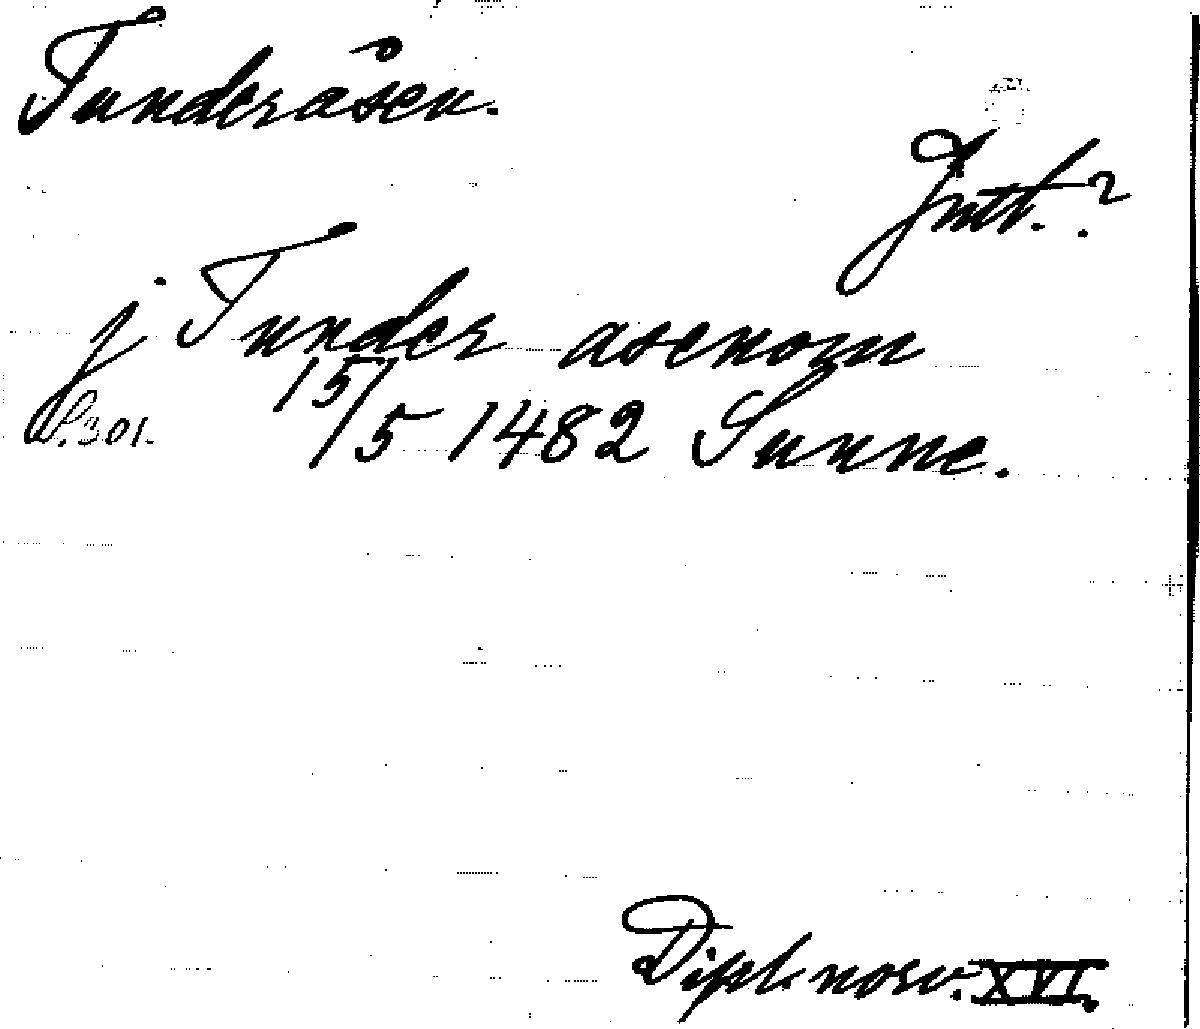 Tunderåsen.
Jmtl.?
j Tunder asenom
S. 301. 15/5 1482 Sunne.
Dipl. norv. XVI.